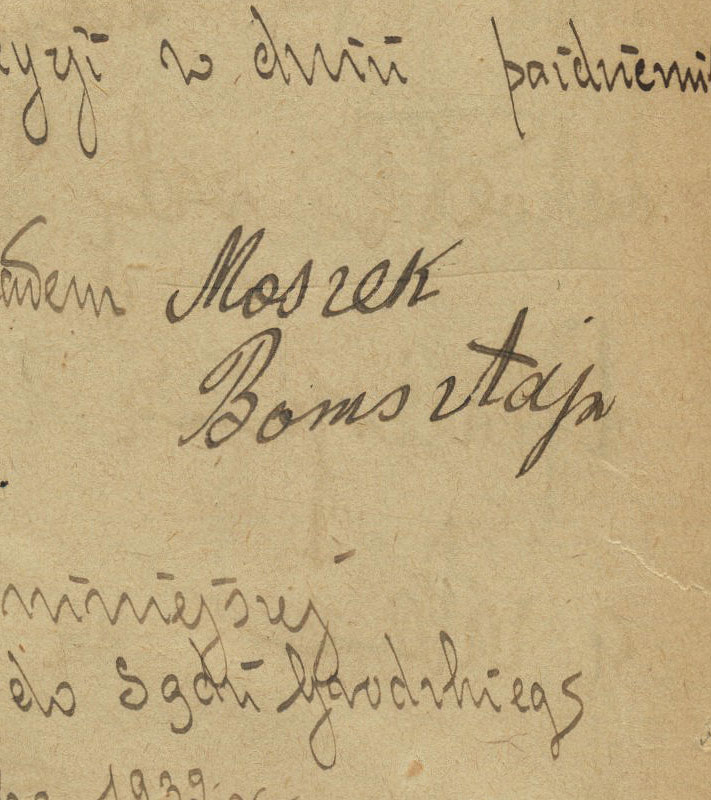 w dniu paidziernik
adem Moszek
Bomsztajn
niniejszej
do Sądu Grodzkiego
1939